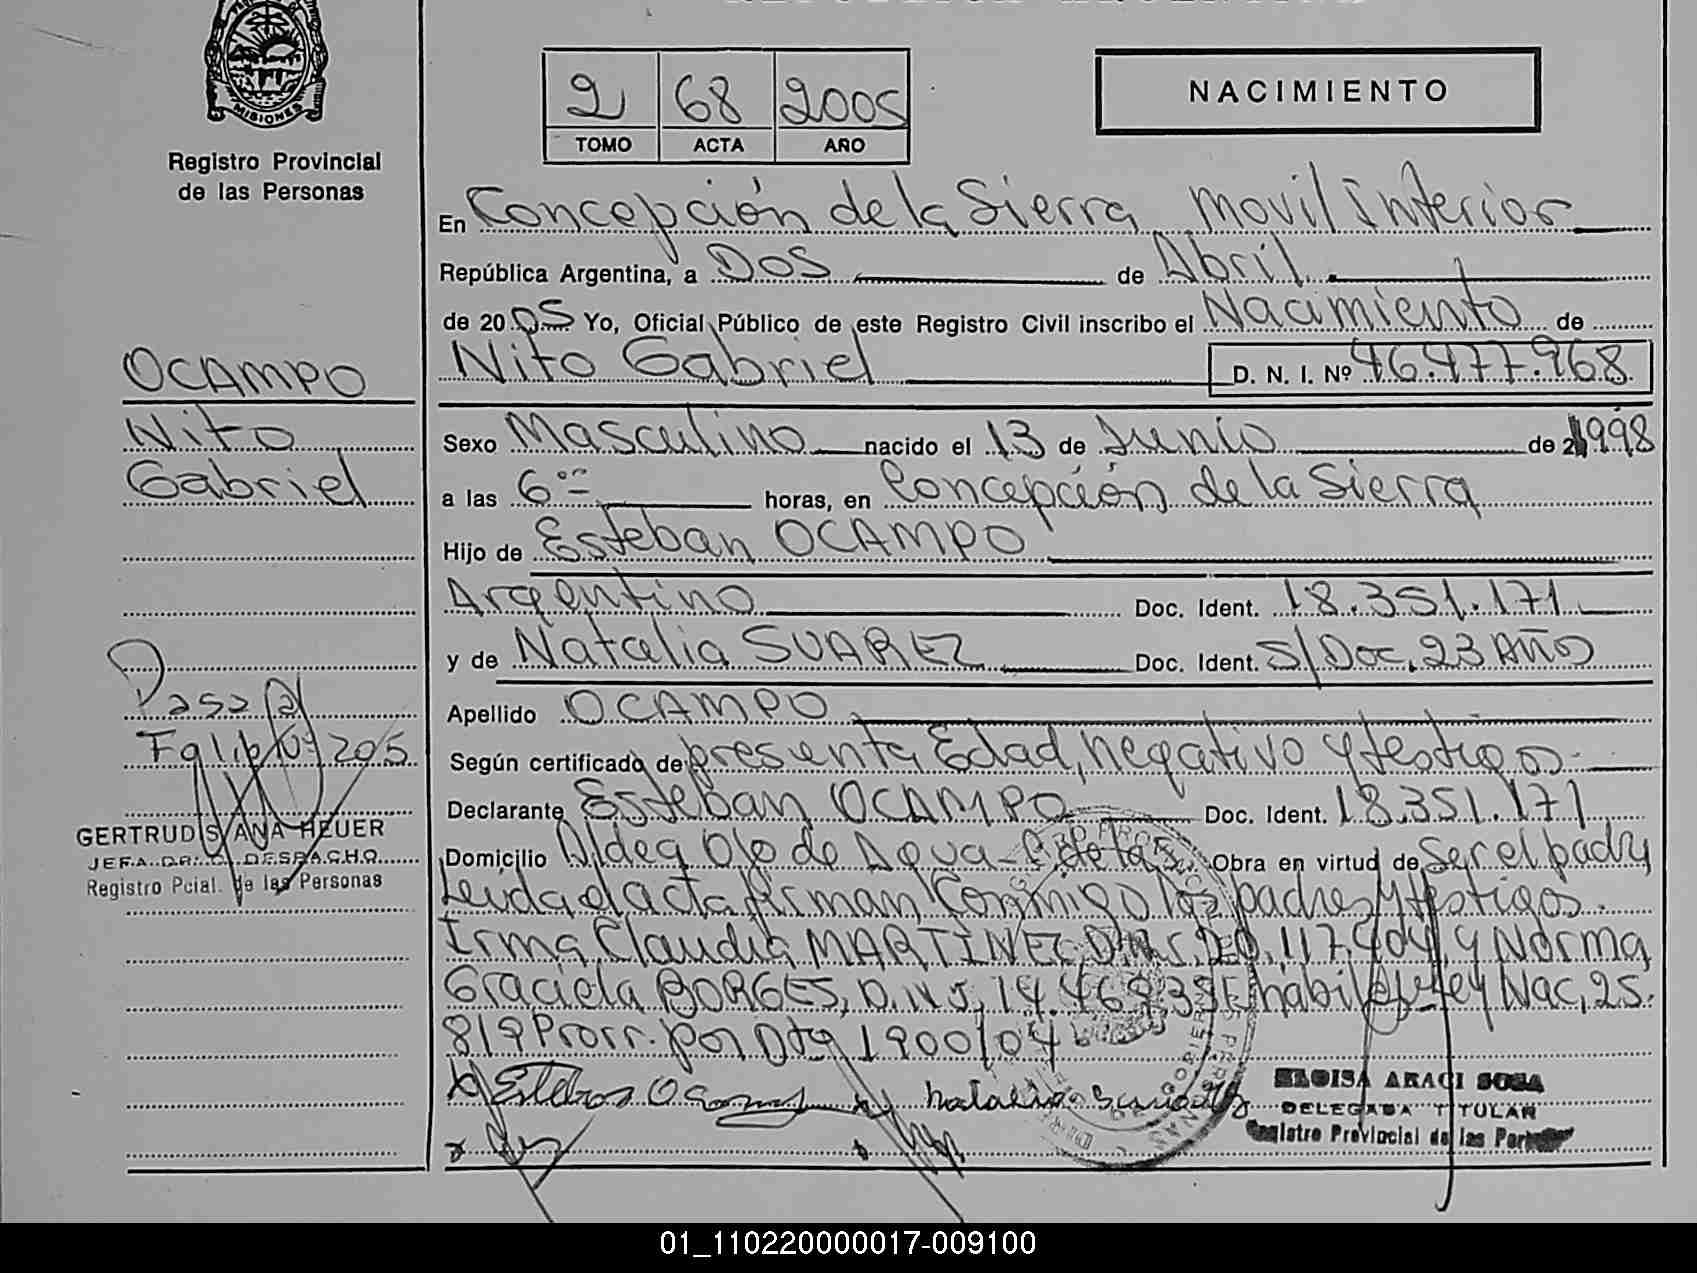 MISIONES
Registro Provincial
de las Personas
2 68 2005
TOMO ACTA AÑO
NACIMIENTO
En Concepción de la Sierra Movil Interior
República Argentina, a DOS de Abril
de 2005 Yo, Oficial Público de este Registro Civil inscribo el Nacimiento de
Nito Gabriel D. N. I. Nº 46.477.968
Sexo Masculino nacido el 13 de Junio de 1998
a las 6 horas, en Concepción de la Sierra
Hijo de Esteban OCAMPO
Argentino Doc. Ident. 18.351.171
y de Natalia SUAREZ Doc. Ident. S/Doc. 23 AÑO
Apellido OCAMPO
Según certificado de presenta Edad, negativo y testigos
Declarante Esteban OCAMPO Doc. Ident. 18.351.171
Domicilio Aldea Ojo de Agua Obra en virtud de Ser el padre
Leida el acta firman Conmigo los padres y testigos
Irma Claudia MARTINEZ, D.N.I. 20.117.404, y Norma
Graciela BORGES, D.N.I. Ley Nac, 25.
819 Prorr. por Dto 1900/04
OCAMPO
Nito
Gabriel
Pasa al
Folio Nº 205
GERTRUDIS ANA HEUER
JEFA DPTO. DESPACHO
Registro Pcial. de las Personas
Esteban Ocampo
ELOISA ARACI SOSA
DELEGADA TITULAR
Registro Provincial de las Personas
01_110220000017-009100